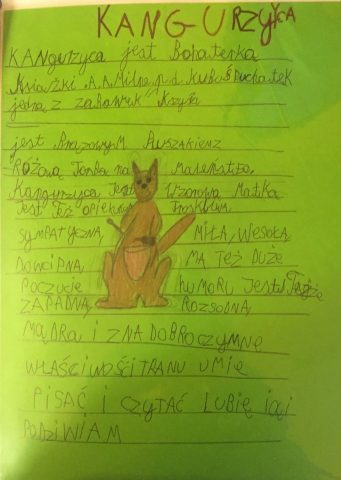 KANGURZYCA
KANGurzyca jest BohateRką
Książki A.A.Milne p.d. Kubuś Puchatek
jedną z zabawek Krzysia
jest Brązowym Pluszakiem z
RÓŻOWą Torbą na Maleństwo.
Kangurzyca Jest Wzorową Matką
Jest Też opiekuńcza Troskliwa
SYMPATYCZNA MIŁA, WESOŁA
DOWCIPNA MA TEŻ DUŻE
POCZUCIE HUMORU JEST Też
ZARADNA ROZSĄDNA
MĄDRA I ZNA DOBROCZYMNĘ
WŁAŚCIWOŚCI TRANU UMIĘ
PISAĆ I CZYTAĆ LUBIĘ ją i
PODZIWIAM